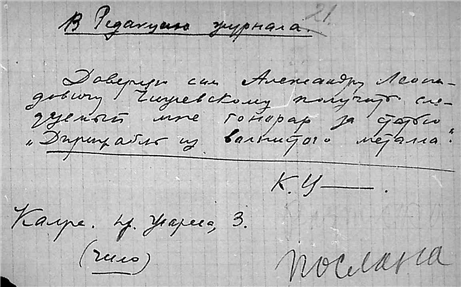 21.
В Редакцию журнала.
Доверяю сим Александру Леони-
довичу Чижевскому получить сле-
дуемый мне гонорар за статью
„Дирижабль из волнистого металла".
К. Ц——.
Калуга. пр. Жореса, 3.
(число)
послана